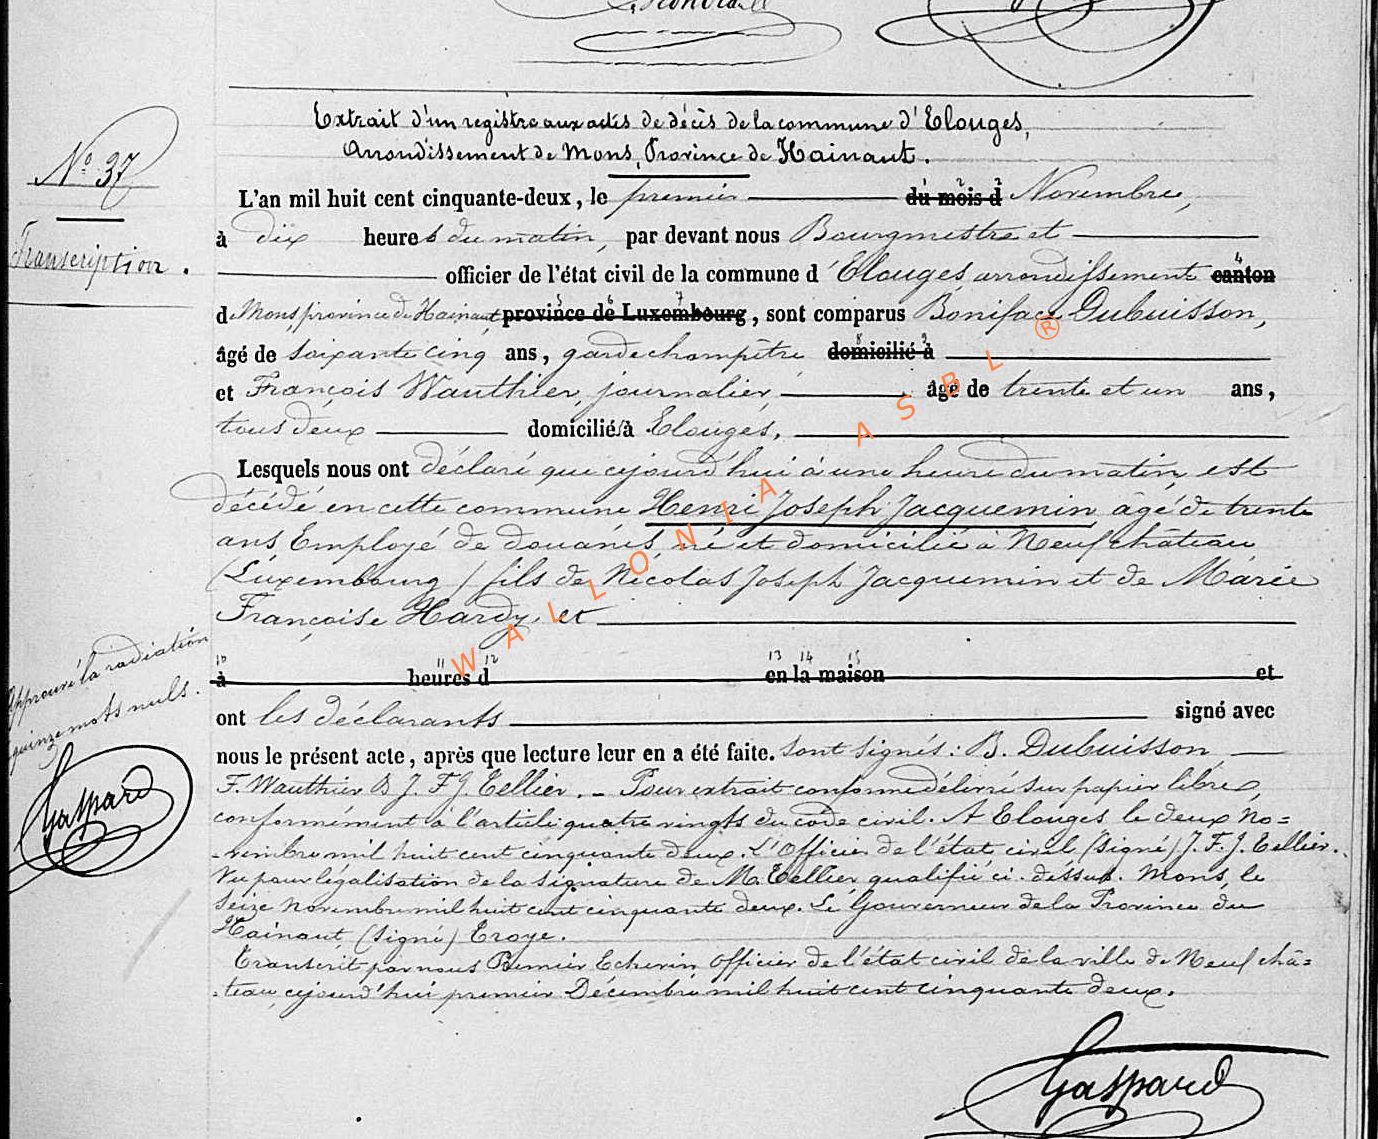 Extrait d'un registre aux actes de décès de la commune d'Elouges,
Arrondissement de Mons, Province de Hainaut.
N° 37
Transcription.
L'an mil huit cent cinquante-deux, le premier du mois d Novembre,
à dix heures du matin, par devant nous Bourgmestre et
officier de l'état civil de la commune d'Elouges arrondissement canton
de Mons, province de Hainaut province de Luxembourg, sont comparus Boniface Dubuisson,
âgé de soixante cinq ans, garde champêtre domicilié à
et François Wauthier, journalier, âgé de trente et un ans,
tous deux domiciliés à Elouges,
Lesquels nous ont déclaré que cejourd'hui à une heure du matin, est
décédé en cette commune Henri Joseph Jacquemin âgé de trente
ans, Employé de douanes, né et domicilié à Neufchâteau
(Luxembourg) fils de Nicolas Joseph Jacquemin et de Marie
Françoise Hardy, et
à heures d en la maison et
ont les déclarants signé avec
nous le présent acte, après que lecture leur en a été faite. Sont signés : B. Dubuisson
F. Wauthier & J. F. J. Tellier. _ Pour extrait conforme délivré sur papier libre,
conformément à l'article quatre vingts du code civil. A Elouges le deux No=
-vembre mil huit cent cinquante deux. L'Officier de l'état civil (Signé) J. F. J. Tellier.
Vu pour légalisation de la signature de M. Tellier qualifié ci-dessus. Mons, le
Seize Novembre mil huit cent cinquante deux. Le Gouverneur de la Province du
Hainaut, (Signé) Troye.
Transcrit par nous Premier Echevin Officier de l'état civil de la ville de Neufchâ=
=teau, cejourd'hui premier Décembre mil huit cent cinquante deux.
Gaspard
Approuvé la radiation
quinze mots nuls.
Gaspard
WALLONIA ASBL ®